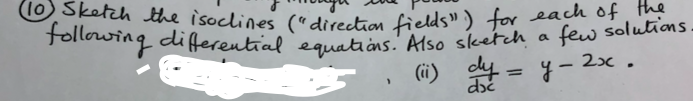 (10) Sketch the isoclines ("direction fields") for each of the
following differential equations. Also sketch a few solutions.
, (ii) dy/dx = y - 2x .